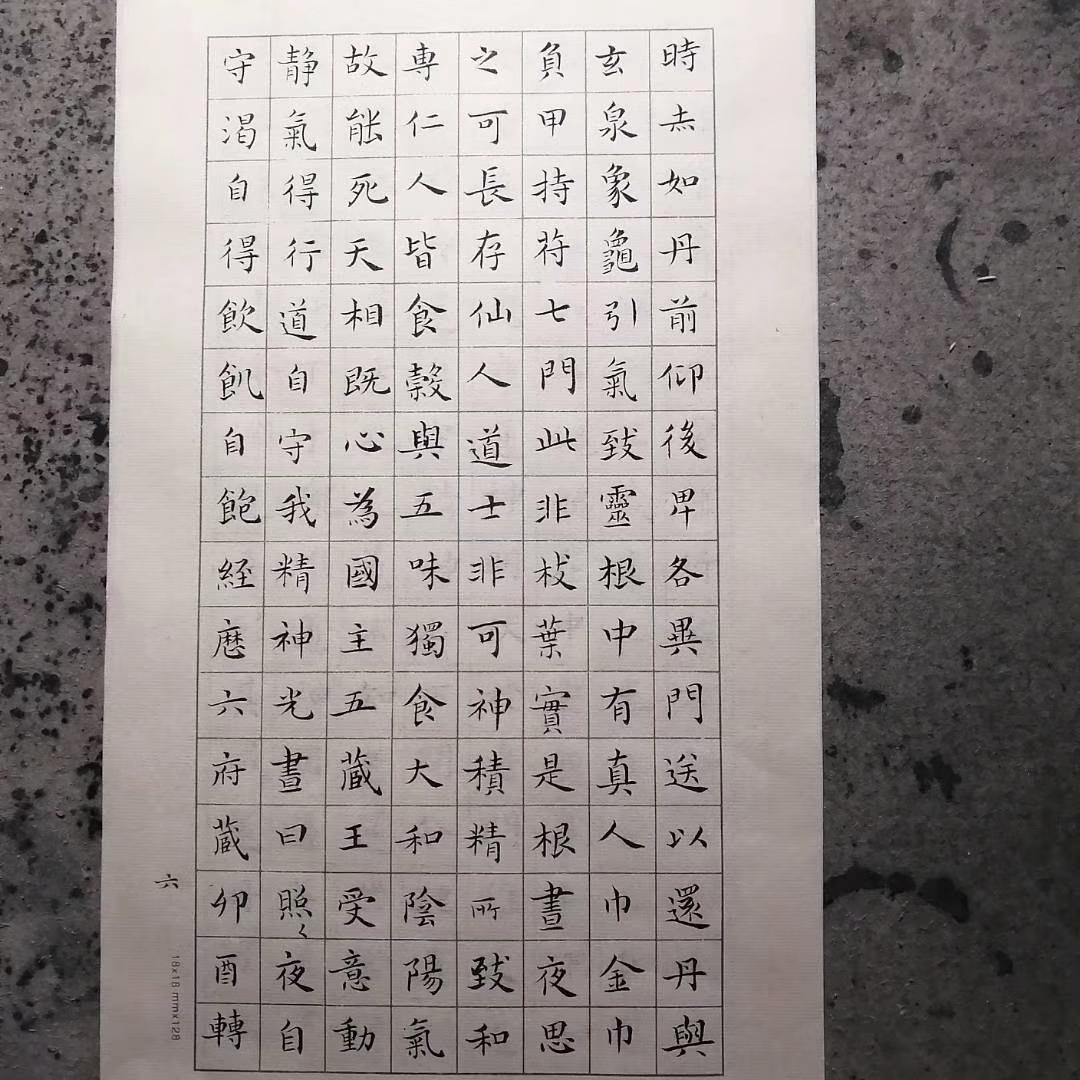 時忐如丹前仰後卑各異門送以還丹與
玄泉象龜引氣致靈根中有真人巾金巾
負甲持苻七門此非枝葉實是根晝夜思
之可長存仙人道士非可神積精所致和
專仁人皆食穀與五味獨食大和陰陽氣
故能死天相既心為國主五藏王受意動
静氣得行道自守我精神光晝日照〻夜自
守渴自得飲飢自飽経歷六府藏卯酉轉
六
18x18 mmx128